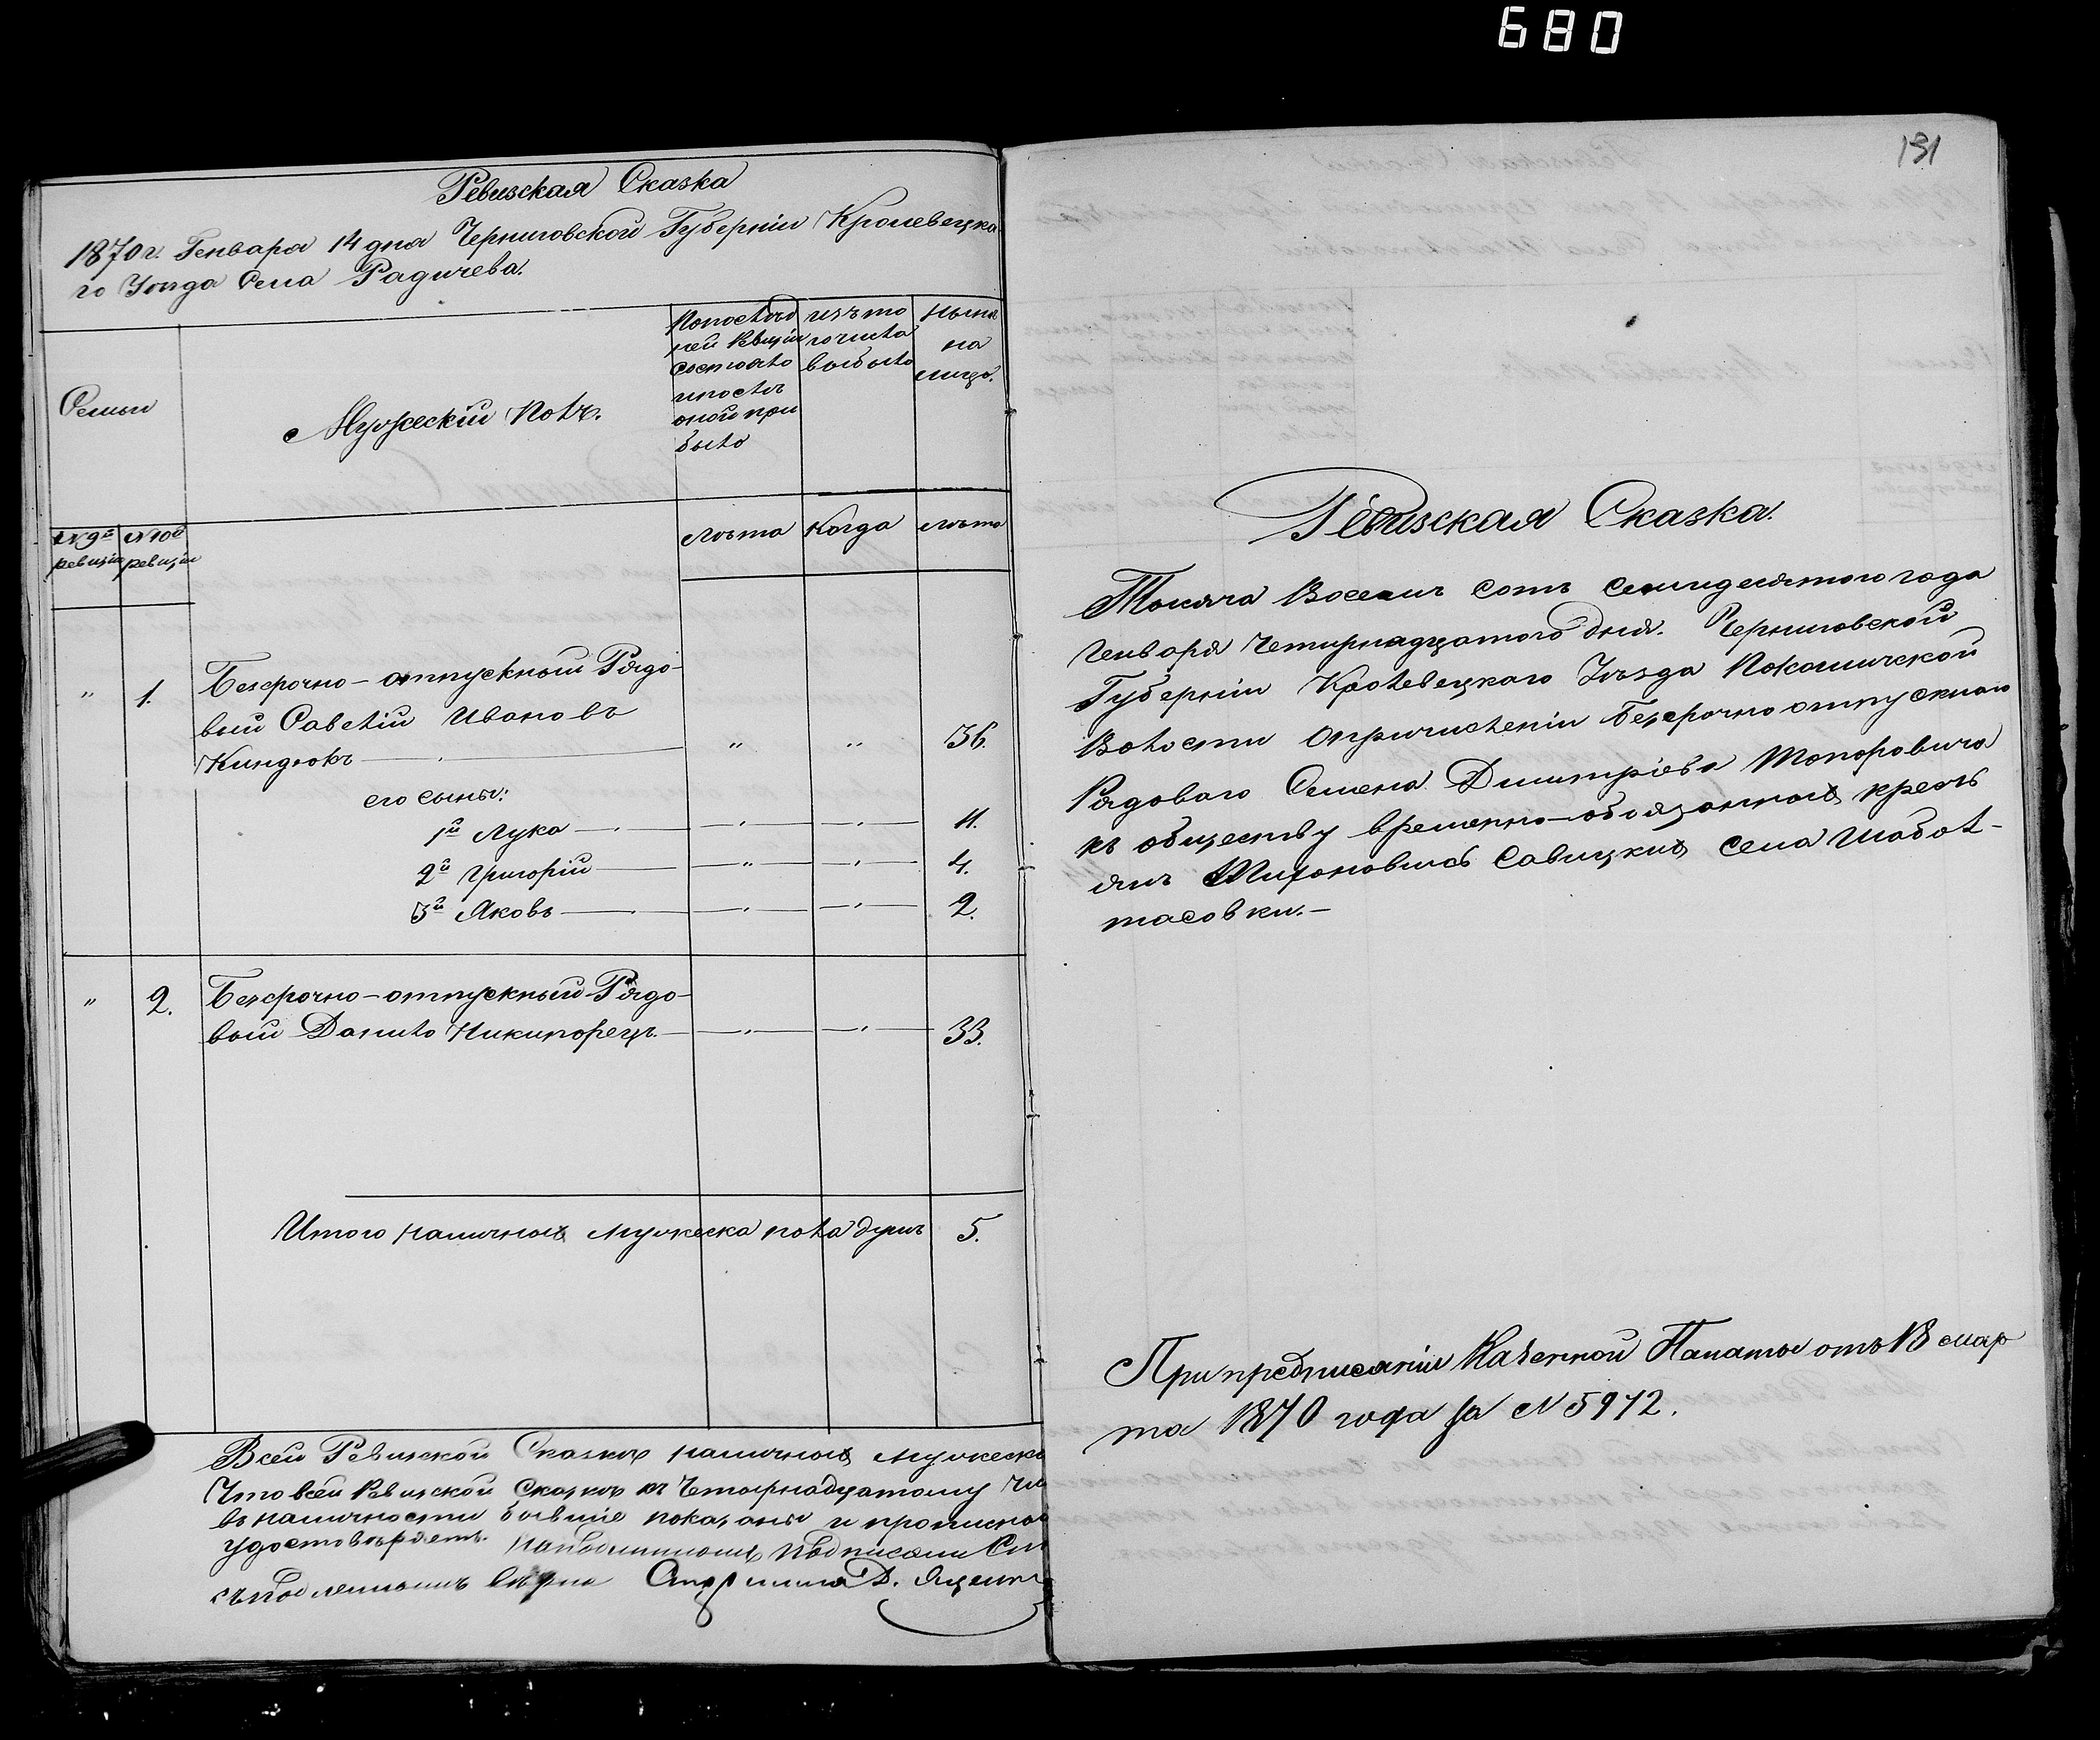 680
Ревизская Сказка
1870 г. Генваря 14 дня Черниговской Губерніи Кролевецка
го Уѣзда Села Радичева.
Семьи
Мужескій Полъ.
Попослѣд
ней Ревизіи
состояло
ипослѣ
оной при
было
изъ то
го числа
выбыло
Нынѣ
на
лицо.
№ 9й ревизіи
№ 10й ревизіи
лѣта
Когда
лѣта
" 1. Безсрочно-отпускный Рядо-
вый Савелій Ивановъ
Киндюкъ " " 36.
его сыны:
1й Лука " " 11.
2й Григорій " " 4.
3й Яковъ " " 2.
" 2. Безсрочно-отпускный Рядо-
вый Данило Никипорецъ " " 33.
Итого наличныхъ мужеска пола душъ 5.
Всей Ревизской Сказкѣ наличныхъ мужеска
Что всей Ревизской Сказкѣ къ Четырнадцатому
въ наличности бывшіе показаны и
удостовѣряетъ. На подлинномъ подписали
съ подлиннымъ вѣрно Старшина Д. Яценк
191
Ревизская Сказка.
Тысяча Восемь сотъ семидесятого года
Генваря Четырнадцатого дня. Черниговской
Губерніи Кролевецкаго Уѣзда Покошичской
Волости Опричисленіи безсрочно отпускного
Рядоваго Семена Дмитріева Топоровича
къ обществу временно-обязанныхъ кресть
янъ Савицкихъ Села Шабал-
тасовки.-
При предписаніи Казенной Палаты отъ 18 мар
та 1870 года за № 5972.